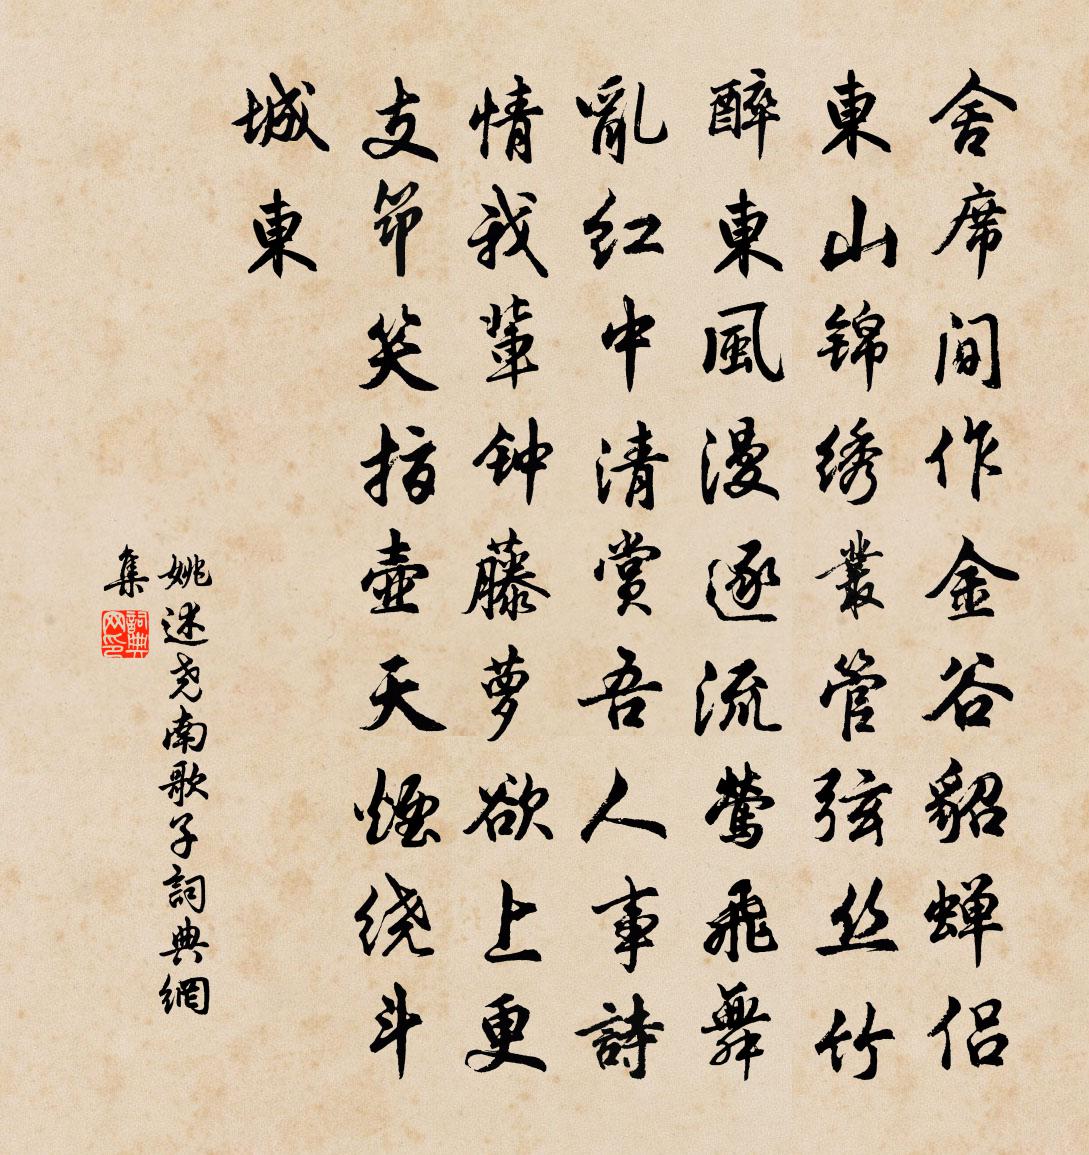 舍席间作金谷貂蝉侣
東山锦绣叢管弦丝竹
醉東風漫逐流莺飛舞
亂红中清賞吾人事詩
情我輩钟藤萝欲上更
支筇笑指壶天煙绕斗
城東
姚述尧南歌子詞典網
集
詞典网印